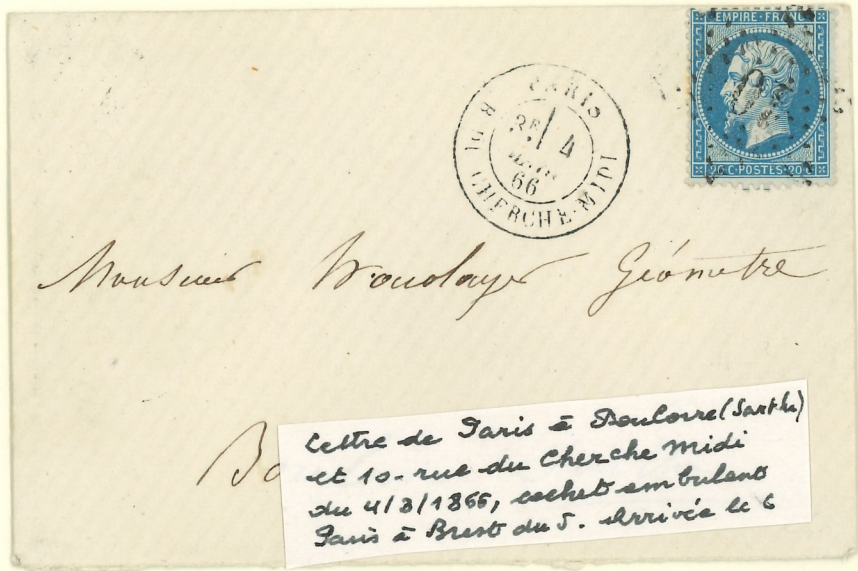 EMPIRE FRANC
20 C POSTES 20
PARIS
3E 4
66
R. DU CHERCHE-MIDI
Monsieur Géomètre
Bo
Lettre de Paris à Bouloire (Sarthe)
et 10 - rue du Cherche Midi
du 4/8/1866, cachet ambulant
Paris à Brest du 5. Arrivée le 6